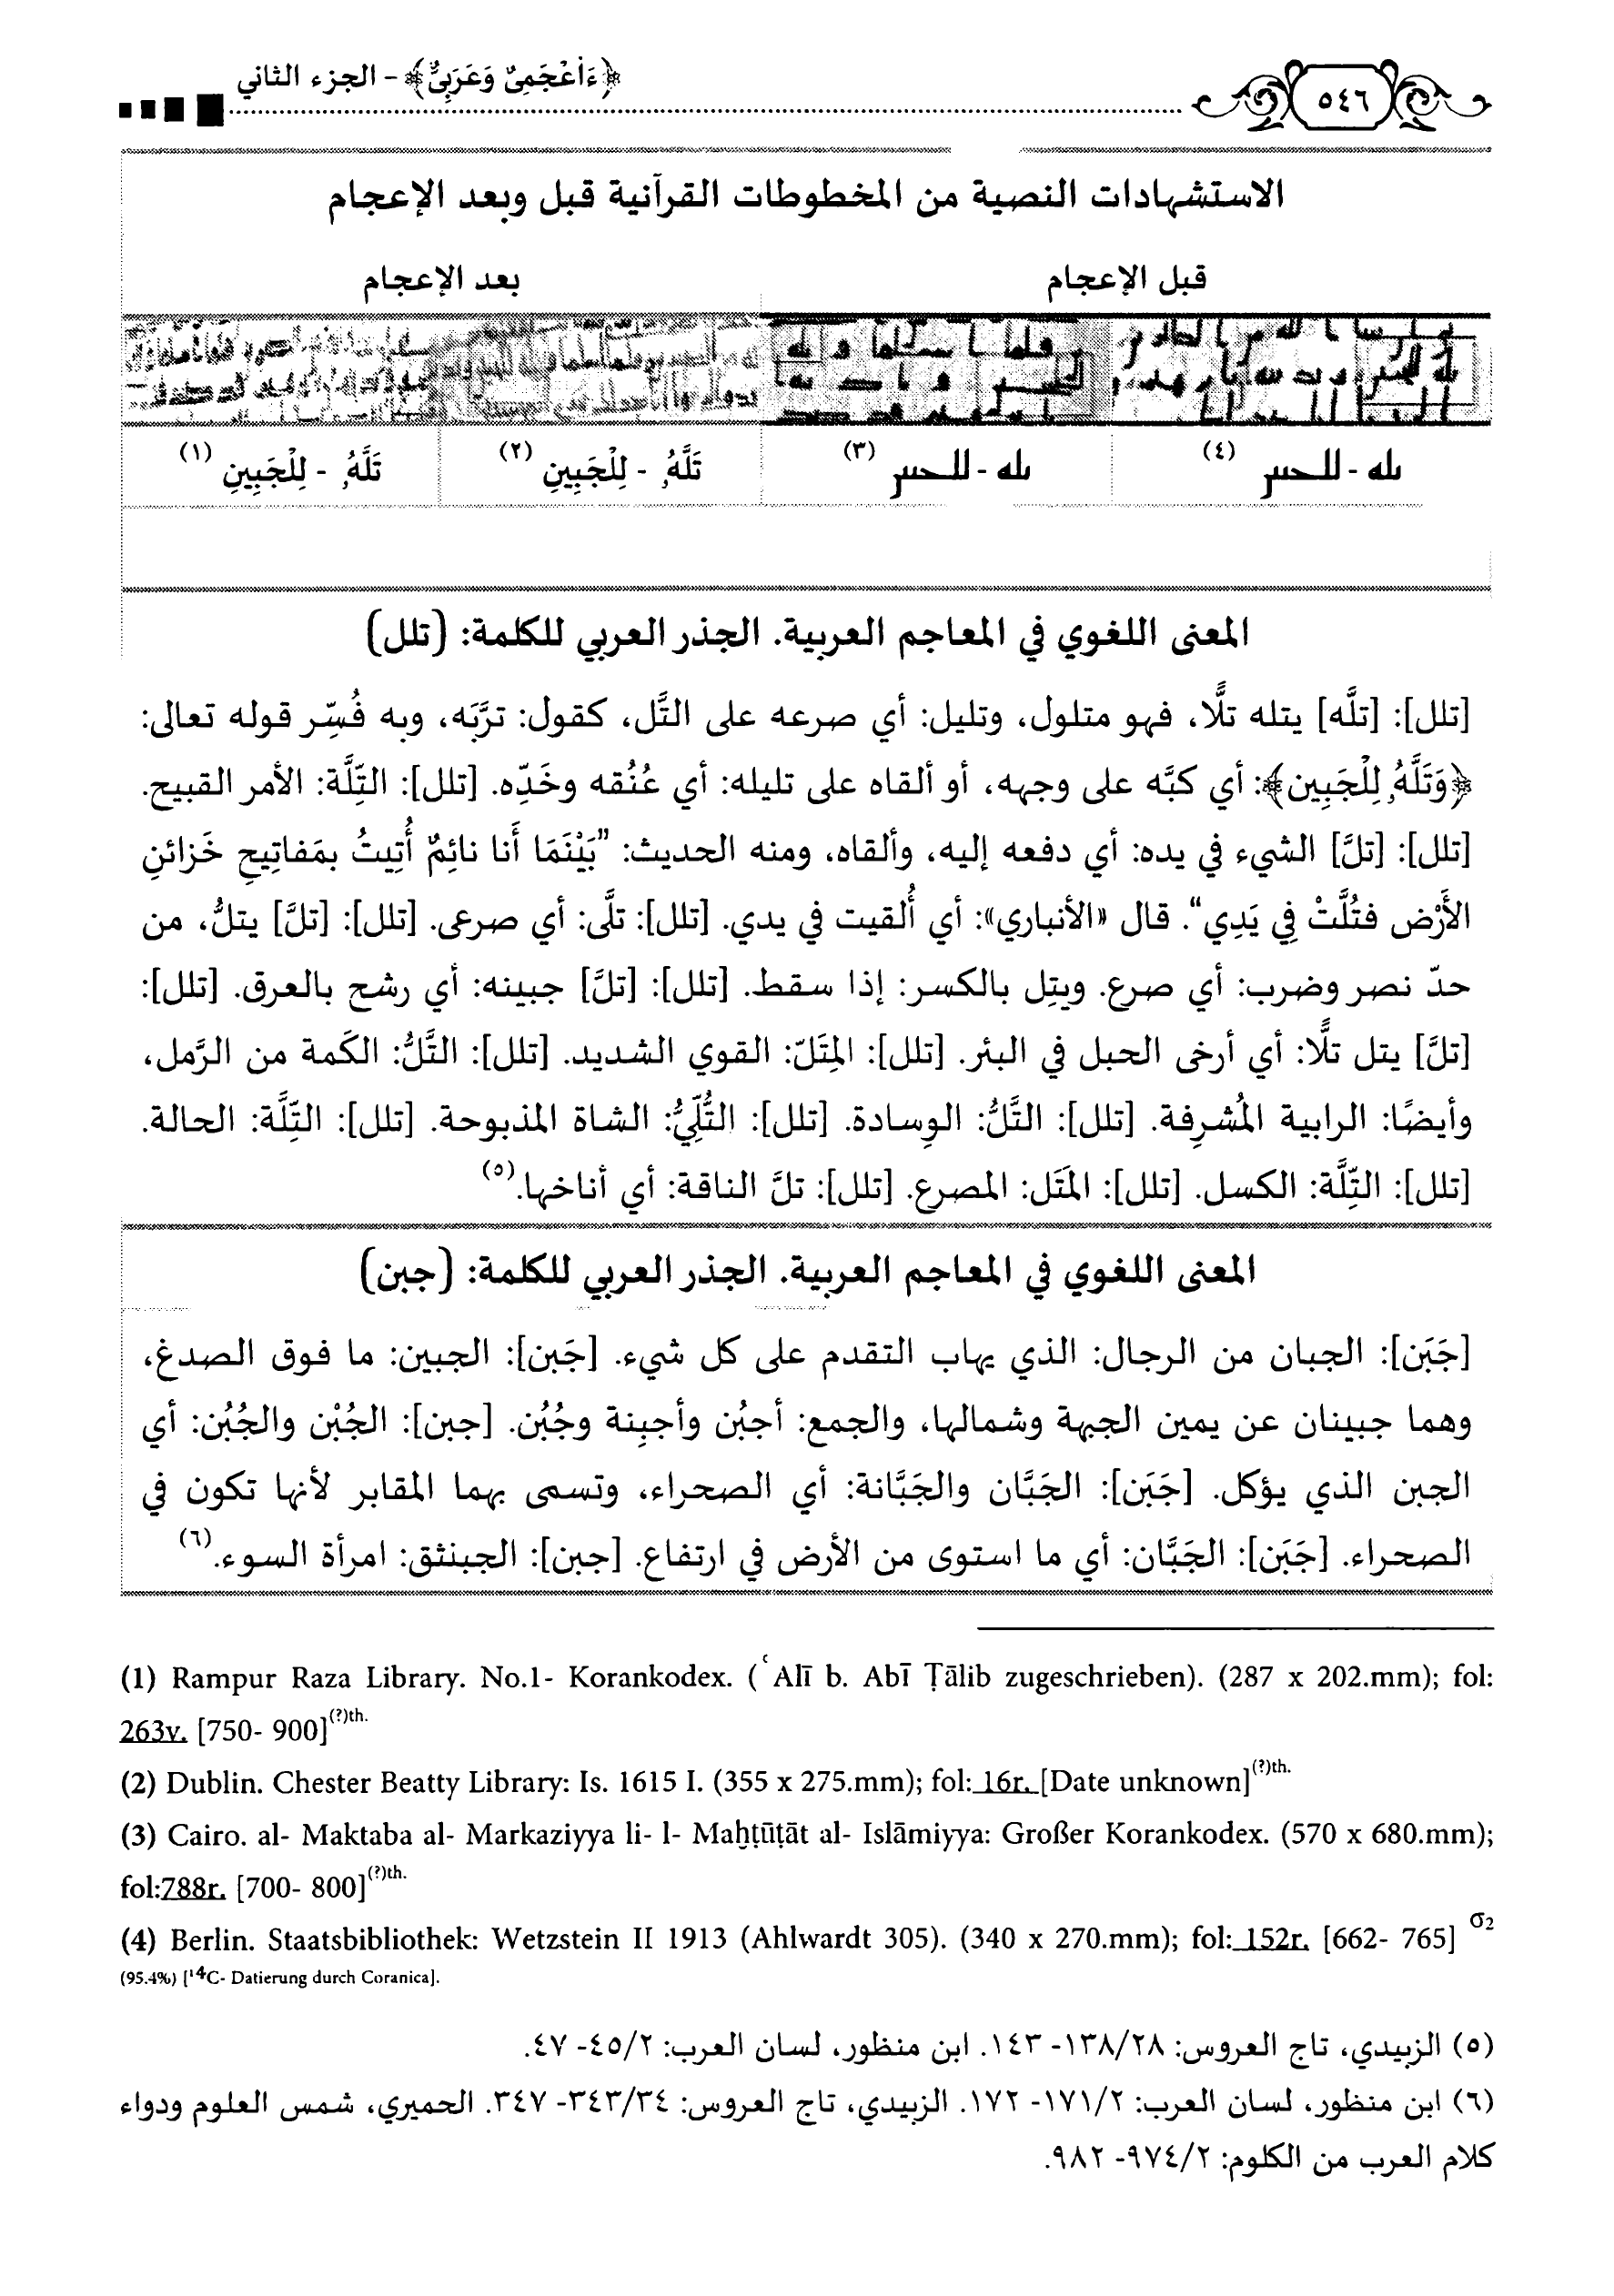 ﴿ءَا۬عْجَمِىٌّ وَعَرَبِىٌّ﴾ - الجزء الثاني
٥٤٦
الاستشهادات النصية من المخطوطات القرآنية قبل وبعد الإعجام
قبل الإعجام
بعد الإعجام
ٮله - للحٮٮں (٤)
ٮله - للحٮٮں (٣)
تَلَّهُۥ - لِلْجَبِينِ (٢)
تَلَّهُۥ - لِلْجَبِينِ (١)
المعنى اللغوي في المعاجم العربية. الجذر العربي للكلمة: (تلل)
[تلل]: [تلَّه] يتله تلًّا، فهو متلول، وتليل: أي صرعه على التَّل، كقول: ترَّبَه، وبه فُسِّر قوله تعالى:
﴿وَتَلَّهُۥ لِلْجَبِين﴾: أي كبَّه على وجهه، أو ألقاه على تليله: أي عُنُقه وخَدِّه. [تلل]: التِّلَّة: الأمر القبيح.
[تلل]: [تلَّ] الشيء في يده: أي دفعه إليه، وألقاه، ومنه الحديث: "بَيْنَمَا أَنا نائِمٌ أُتِيتُ بمَفاتِيحِ خَزائنِ
الأَرْض فتُلَّتْ فِي يَدِي". قال «الأنباري»: أي أُلقيت في يدي. [تلل]: تلَّى: أي صرعى. [تلل]: [تلَّ] يتلُّ، من
حدّ نصر وضرب: أي صرع. ويتِل بالكسر: إذا سقط. [تلل]: [تلَّ] جبينه: أي رشح بالعرق. [تلل]:
[تلَّ] يتل تلًّا: أي أرخى الحبل في البئر. [تلل]: المِتَلّ: القوي الشديد. [تلل]: التَّلُّ: الكَمة من الرَّمل،
وأيضًا: الرابية المُشرِفة. [تلل]: التَّلُّ: الوِسادة. [تلل]: التُّلِّيُّ: الشاة المذبوحة. [تلل]: التِّلَّة: الحالة.
[تلل]: التِّلَّة: الكسل. [تلل]: المَتَل: المصرع. [تلل]: تلَّ الناقة: أي أناخها.(٥)
المعنى اللغوي في المعاجم العربية. الجذر العربي للكلمة: (جبن)
[جَبَن]: الجبان من الرجال: الذي يهاب التقدم على كل شيء. [جَبن]: الجبين: ما فوق الصدغ،
وهما جبينان عن يمين الجبهة وشمالها، والجمع: أجبُن وأجبِنة وجُبُن. [جبن]: الجُبْن والجُبُن: أي
الجبن الذي يؤكل. [جَبَن]: الجَبَّان والجَبَّانة: أي الصحراء، وتسمى بهما المقابر لأنها تكون في
الصحراء. [جَبَن]: الجَبَّان: أي ما استوى من الأرض في ارتفاع. [جبن]: الجبنثق: امرأة السوء.(٦)
(1) Rampur Raza Library. No.1- Korankodex. (ʿAlī b. Abī Ṭālib zugeschrieben). (287 x 202.mm); fol:
263v. [750- 900](?)th.
(2) Dublin. Chester Beatty Library: Is. 1615 I. (355 x 275.mm); fol: 16r. [Date unknown](?)th.
(3) Cairo. al- Maktaba al- Markaziyya li- l- Maḫṭūṭāt al- Islāmiyya: Großer Korankodex. (570 x 680.mm);
fol:788r. [700- 800](?)th.
(4) Berlin. Staatsbibliothek: Wetzstein II 1913 (Ahlwardt 305). (340 x 270.mm); fol: 152r. [662- 765] σ2
(95.4%) [14C- Datierung durch Coranica].
(٥) الزبيدي، تاج العروس: ١٣٨/٢٨- ١٤٣. ابن منظور، لسان العرب: ٤٥/٢- ٤٧.
(٦) ابن منظور، لسان العرب: ١٧١/٢- ١٧٢. الزبيدي، تاج العروس: ٣٤٣/٣٤- ٣٤٧. الحميري، شمس العلوم ودواء
كلام العرب من الكلوم: ٩٧٤/٢- ٩٨٢.